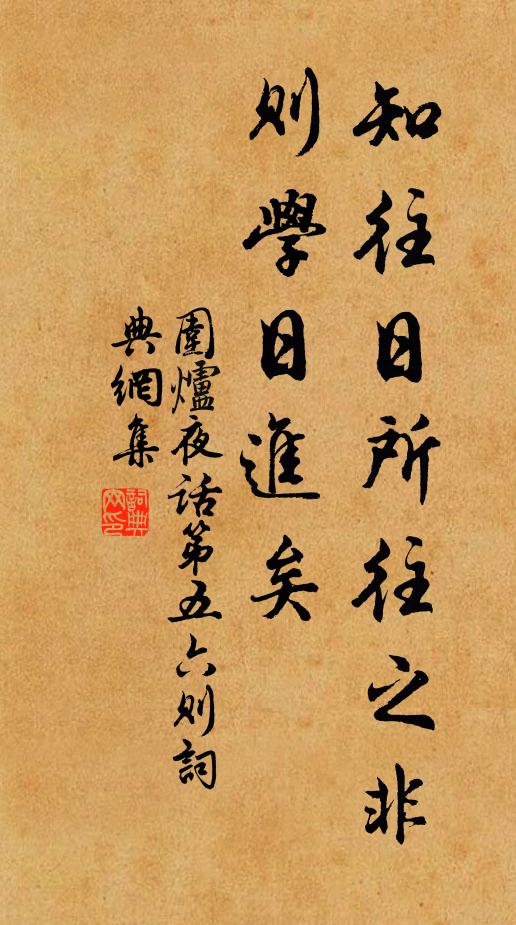 知往日所往之非
則學日進矣
圍爐夜話第五六則詞
典網集
詞典
网印